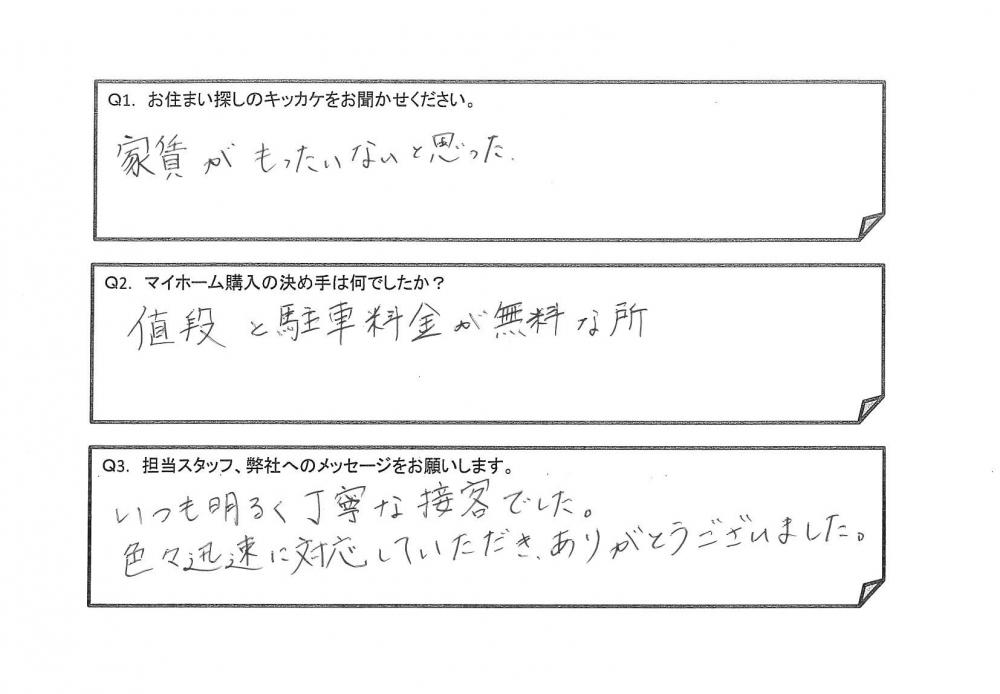 Q1. お住まい探しのキッカケをお聞かせください。
家賃がもったいないと思った.
Q2. マイホーム購入の決め手は何でしたか？
値段と駐車料金が無料な所
Q3. 担当スタッフ、弊社へのメッセージをお願いします。
いつも明るく丁寧な接客でした。
色々迅速に対応していただき、ありがとうございました。